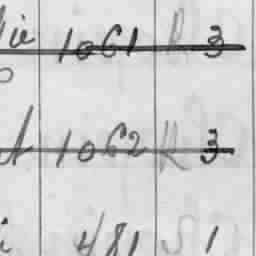 1061 R 3
1062 R 3
481 S 1